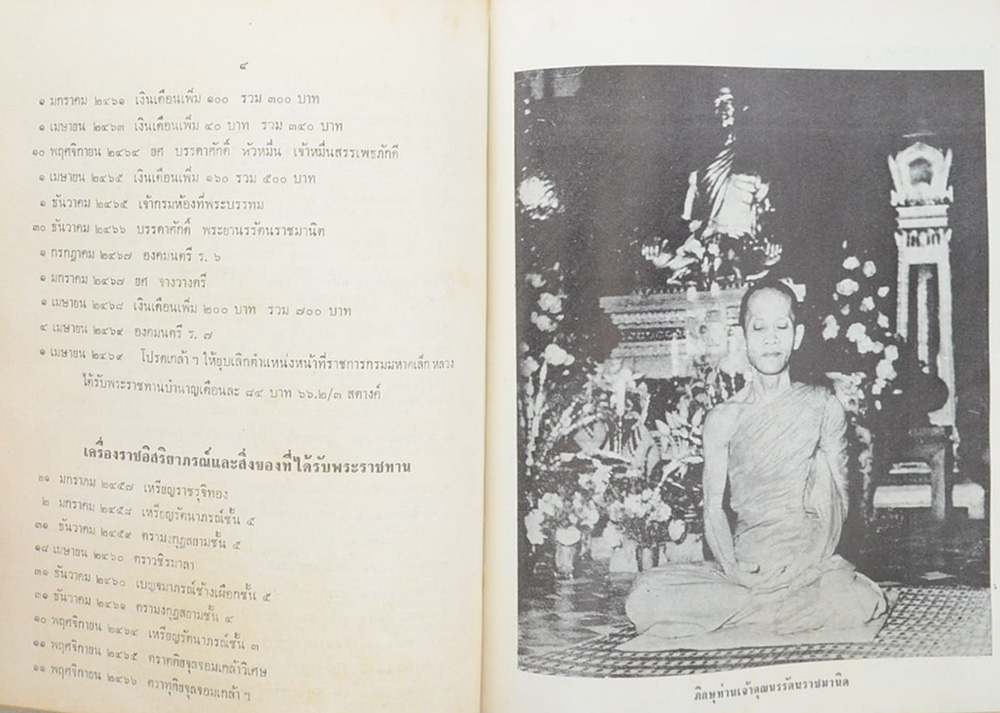 ๔
๑ มกราคม ๒๔๖๑ เงินเดือนเพิ่ม ๑๐๐ รวม ๓๐๐ บาท
๑ เมษายน ๒๔๖๓ เงินเดือนเพิ่ม ๔๐ บาท รวม ๓๔๐ บาท
๑๐ พฤศจิกายน ๒๔๖๔ ยศ บรรดาศักดิ์ หัวหมื่น เจ้าหมื่นสรรเพธภักดี
๑ เมษายน ๒๔๖๕ เงินเดือนเพิ่ม ๑๖๐ รวม ๕๐๐ บาท
๑ ธันวาคม ๒๔๖๕ เจ้ากรมห้องที่พระบรรทม
๓๐ ธันวาคม ๒๔๖๖ บรรดาศักดิ์ พระยานรรัตนราชมานิต
๑ กรกฎาคม ๒๔๖๗ องคมนตรี ร. ๖
๑ มกราคม ๒๔๖๗ ยศ จางวางตรี
๑ เมษายน ๒๔๖๘ เงินเดือนเพิ่ม ๒๐๐ บาท รวม ๗๐๐ บาท
๔ เมษายน ๒๔๖๙ องคมนตรี ร. ๗
๑ เมษายน ๒๔๖๙ โปรดเกล้า ฯ ให้ยุบเลิกตำแหน่งหน้าที่ราชการกรมมหาดเล็กหลวง
ได้รับพระราชทานบำนาญเดือนละ ๘๔ บาท ๖๖.๒/๓ สตางค์
เครื่องราชอิสริยาภรณ์และสิ่งของที่ได้รับพระราชทาน
๒๑ มกราคม ๒๔๕๗ เหรียญราชรุจิทอง
๒ มกราคม ๒๔๕๘ เหรียญรัตนาภรณ์ชั้น ๕
๓๑ ธันวาคม ๒๔๕๙ ตรามงกุฎสยามชั้น ๕
๑๘ เมษายน ๒๔๖๐ ตราวชิรมาลา
๓๑ ธันวาคม ๒๔๖๐ เบญจมาภรณ์ช้างเผือกชั้น ๕
๓๑ ธันวาคม ๒๔๖๑ ตรามงกุฎสยามชั้น ๔
๑๐ พฤศจิกายน ๒๔๖๔ เหรียญรัตนาภรณ์ชั้น ๓
๑๑ พฤศจิกายน ๒๔๖๕ ตราตติยจุลจอมเกล้าวิเศษ
๑๑ พฤศจิกายน ๒๔๖๖ ตราทุติยจุลจอมเกล้า ฯ
ภิกษุท่านเจ้าคุณนรรัตนราชมานิต